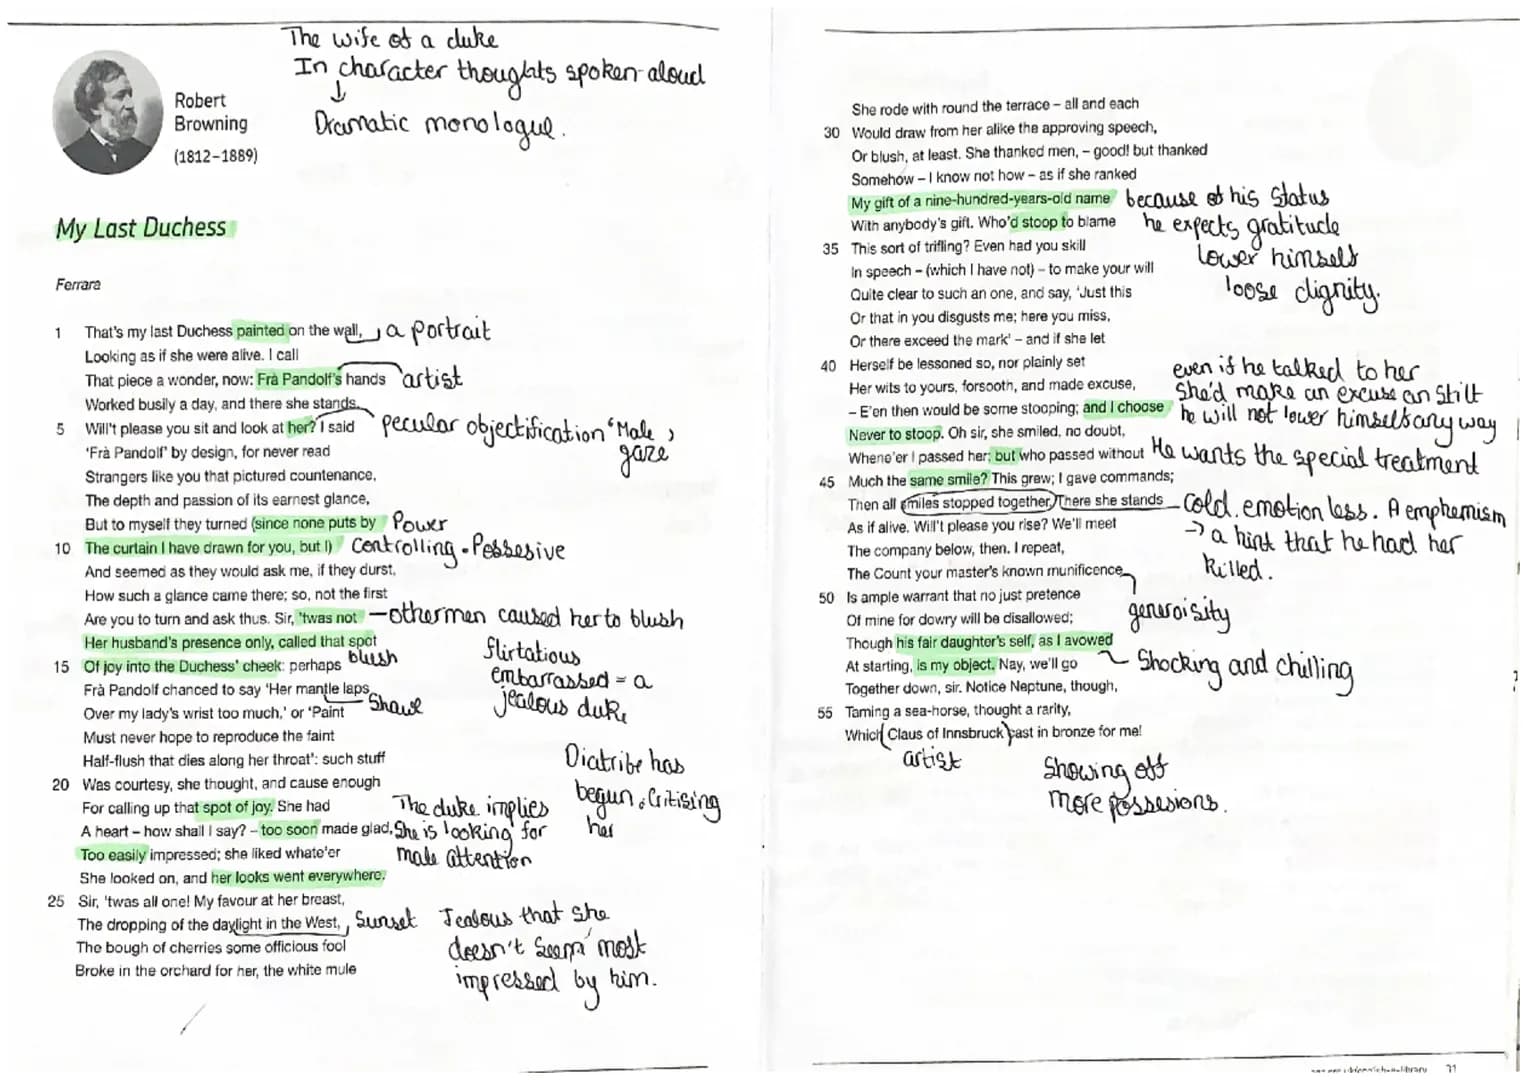 The wife of a duke
In character thoughts spoken aloud
↓
Dramatic monologue.
Robert
Browning
(1812–1889)
My Last Duchess
Ferrara
1 That's my last Duchess painted on the wall, a portrait
Looking as if she were alive. I call
That piece a wonder, now: Frà Pandolf's hands artist
Worked busily a day, and there she stands.
5 Will't please you sit and look at her? I said pecular objectification 'Male gaze
'Frà Pandolf' by design, for never read
Strangers like you that pictured countenance,
The depth and passion of its earnest glance,
But to myself they turned (since none puts by Power
10 The curtain I have drawn for you, but I) Controlling • Possesive
And seemed as they would ask me, if they durst,
How such a glance came there; so, not the first
Are you to turn and ask thus. Sir, 'twas not — other men caused her to blush
Her husband's presence only, called that spot
15 Of joy into the Duchess' cheek: perhaps blush
flirtatious
embarrassed = a
jealous duke
Frà Pandolf chanced to say 'Her mantle laps
Over my lady's wrist too much,' or 'Paint Shawl
Must never hope to reproduce the faint
Half-flush that dies along her throat': such stuff
Diatribe has
begun. Critising
her
20 Was courtesy, she thought, and cause enough
For calling up that spot of joy. She had
A heart – how shall I say? – too soon made glad,
Too easily impressed; she liked whate'er
She looked on, and her looks went everywhere.
The duke implies
She is looking for
male attention
25 Sir, 'twas all one! My favour at her breast,
The dropping of the daylight in the West, Sunset
The bough of cherries some officious fool
Broke in the orchard for her, the white mule
Jealous that she
doesn't seem most
impressed by him.
She rode with round the terrace – all and each
30 Would draw from her alike the approving speech,
Or blush, at least. She thanked men, – good! but thanked
Somehow – I know not how – as if she ranked
My gift of a nine-hundred-years-old name because of his status
With anybody's gift. Who'd stoop to blame he expects gratitude
35 This sort of trifling? Even had you skill
lower himself
In speech – (which I have not) – to make your will
loose dignity.
Quite clear to such an one, and say, 'Just this
Or that in you disgusts me; here you miss,
Or there exceed the mark' – and if she let
40 Herself be lessoned so, nor plainly set
even if he talked to her
Her wits to yours, forsooth, and made excuse,
She'd make an excuse an still
– E'en then would be some stooping; and I choose he will not lower himself any way
Never to stoop. Oh sir, she smiled, no doubt,
Whene'er I passed her; but who passed without He wants the special treatment
45 Much the same smile? This grew; I gave commands;
Then all smiles stopped together. There she stands Cold. emotion less. A emphemism
As if alive. Will't please you rise? We'll meet
→ a hint that he had her
killed.
The company below, then. I repeat,
The Count your master's known munificence
50 Is ample warrant that no just pretence
generoisity
Of mine for dowry will be disallowed;
Though his fair daughter's self, as I avowed
At starting, is my object. Nay, we'll go Shocking and chilling
Together down, sir. Notice Neptune, though,
55 Taming a sea-horse, thought a rarity,
Which Claus of Innsbruck cast in bronze for me!
artist
Showing off
more possesions.